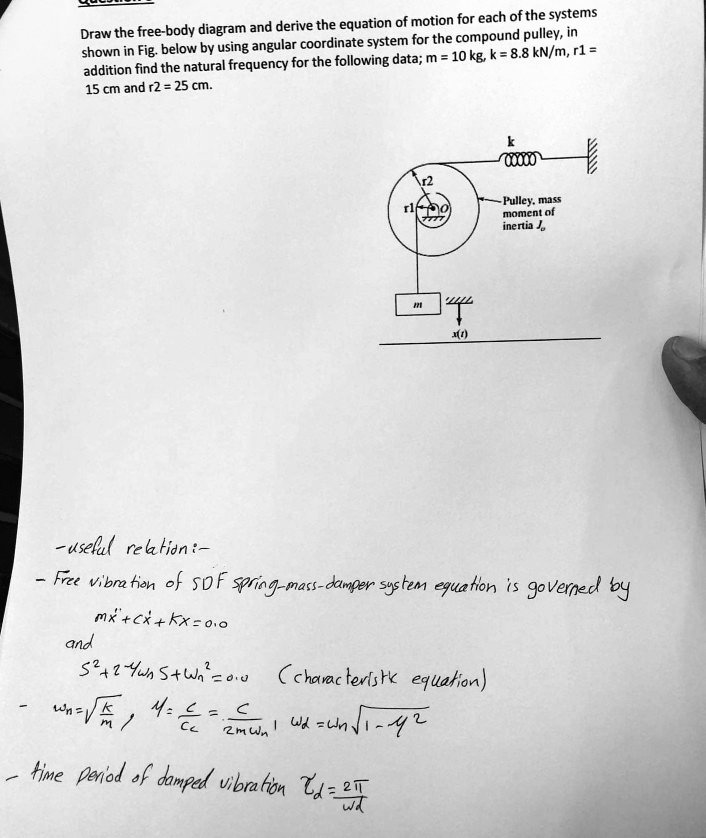 Draw the free-body diagram and derive the equation of motion for each of the systems
shown in Fig. below by using angular coordinate system for the compound pulley, in
addition find the natural frequency for the following data; m = 10 kg, k = 8.8 kN/m, r1 =
15 cm and r2 = 25 cm.
k
r2
r1
O
Pulley, mass
moment of
inertia Jₒ
m
x(t)
-useful relation:-
- Free vibration of SDF spring-mass-damper system equation is governed by
mẍ + cẋ + Kx = 0.0
and
S² + 2 y wn S + wn² = 0.0 (characteristic equation)
- wn = √(K/m) , y = C/Cc = C/(2mwn) , wd = wn √(1 - y²)
- time period of damped vibration τd = 2π/wd